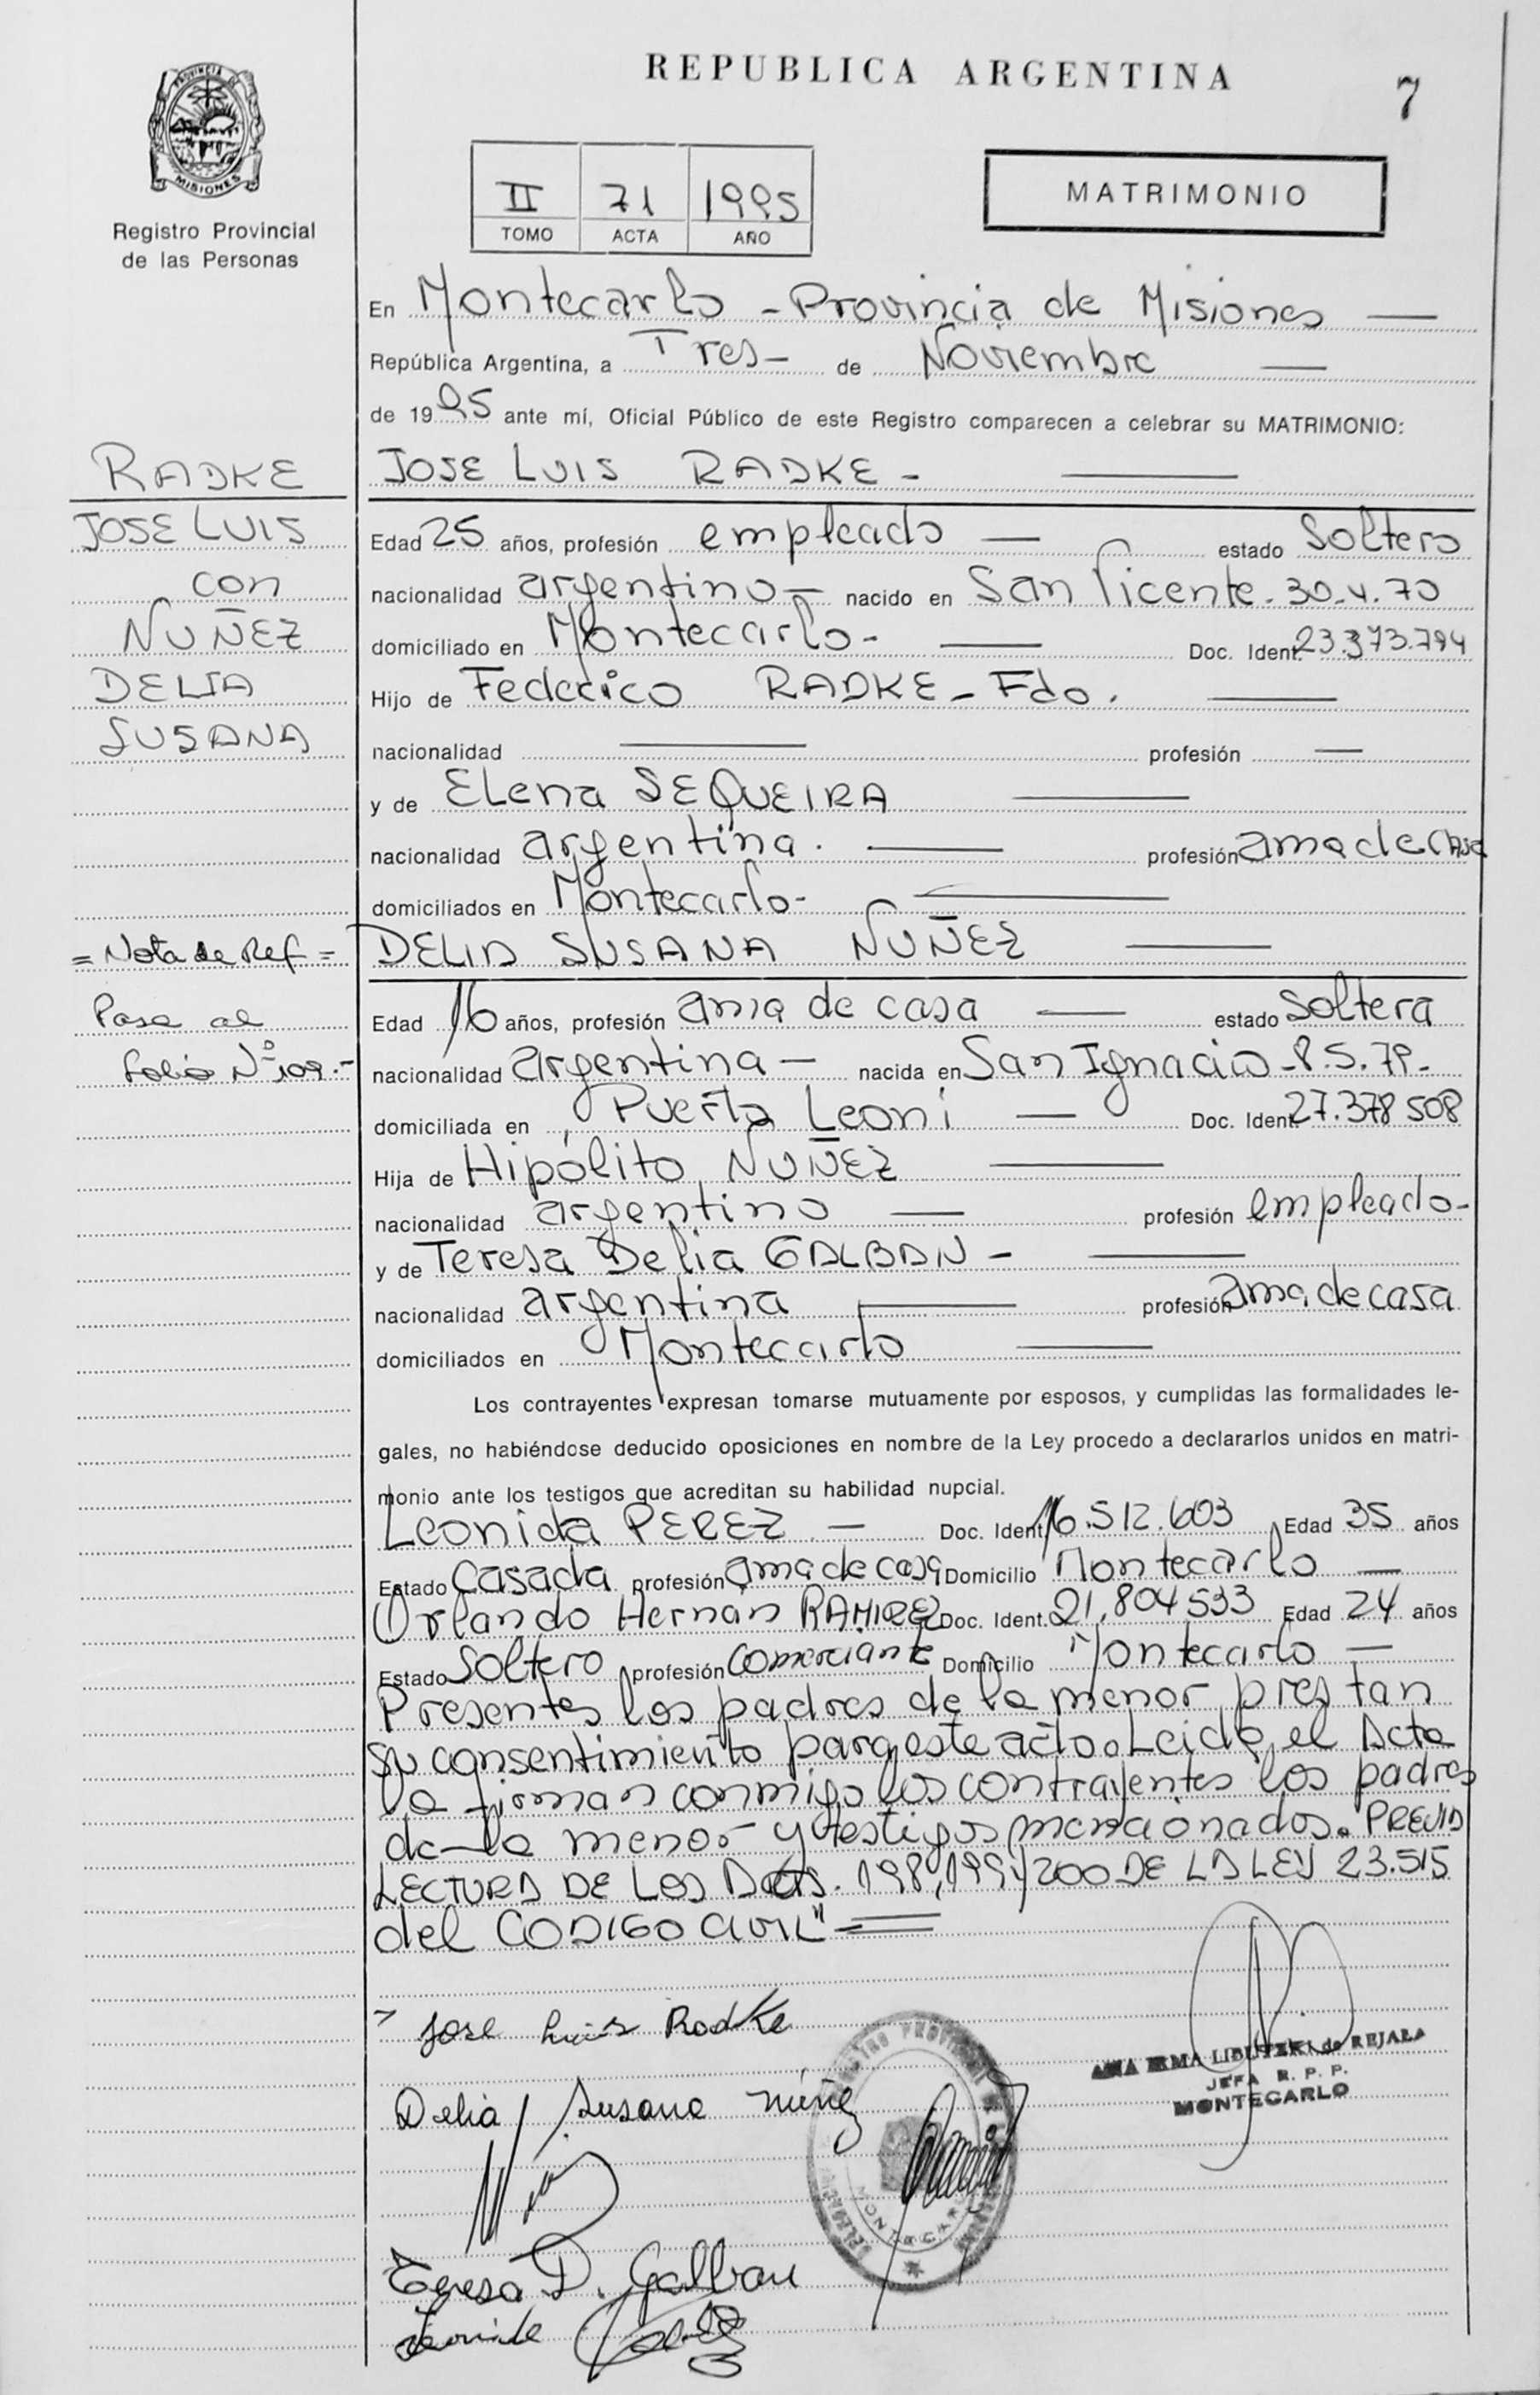 REPUBLICA ARGENTINA
7
PROVINCIA DE
MISIONES
Registro Provincial
de las Personas
II 71 1995
TOMO ACTA AÑO
MATRIMONIO
En Montecarlo - Provincia de Misiones —
República Argentina, a Tres - de Noviembre —
de 1995 ante mí, Oficial Público de este Registro comparecen a celebrar su MATRIMONIO:
RADKE
JOSE LUIS
con
NUÑEZ
DELIA
SUSANA
= Nota de Ref =
Pasa al
folio Nº 109.-
JOSE LUIS RADKE - —
Edad 25 años, profesión empleado — estado Soltero
nacionalidad argentino — nacido en San Vicente - 30.4.70
domiciliado en Montecarlo - — Doc. Ident. 23.373.794
Hijo de Federico RADKE - Fdo. —
nacionalidad — profesión —
y de Elena SEQUEIRA —
nacionalidad argentina. — profesión ama de casa
domiciliados en Montecarlo - —
DELIA SUSANA NUÑEZ —
Edad 16 años, profesión ama de casa — estado Soltera
nacionalidad argentina — nacida en San Ignacio - 8.5.79 -
domiciliada en Puerto Leoni — Doc. Ident. 27.378 508
Hija de Hipólito NUÑEZ —
nacionalidad argentino — profesión empleado -
y de Teresa Delia GALBAN - —
nacionalidad argentina — profesión ama de casa
domiciliados en Montecarlo —
Los contrayentes expresan tomarse mutuamente por esposos, y cumplidas las formalidades le-
gales, no habiéndose deducido oposiciones en nombre de la Ley procedo a declararlos unidos en matri-
monio ante los testigos que acreditan su habilidad nupcial.
Leonida PEREZ — Doc. Ident. 16.512.603 Edad 35 años
Estado Casada profesión ama de casa Domicilio Montecarlo —
Orlando Hernan RAMIREZ Doc. Ident. 21.804533 Edad 24 años
Estado Soltero profesión Comerciante Domicilio Montecarlo —
Presentes los padres de la menor prestan
su consentimiento para este acto. Leida el Acta
la firman conmigo los contrayentes los padres
de la menor y testigos mencionados. PREVIA
LECTURA DE LOS Arts. 198, 199 y 200 DE LA LEY 23.515
del CODIGO CIVIL" =
Jose Luis Radke
Delia Susana Nuñez
ANA IRMA de REJALA
JEFA R. P. P.
MONTECARLO
REGISTRO PROVINCIAL DE
MONTECARLO
Teresa D. Galban